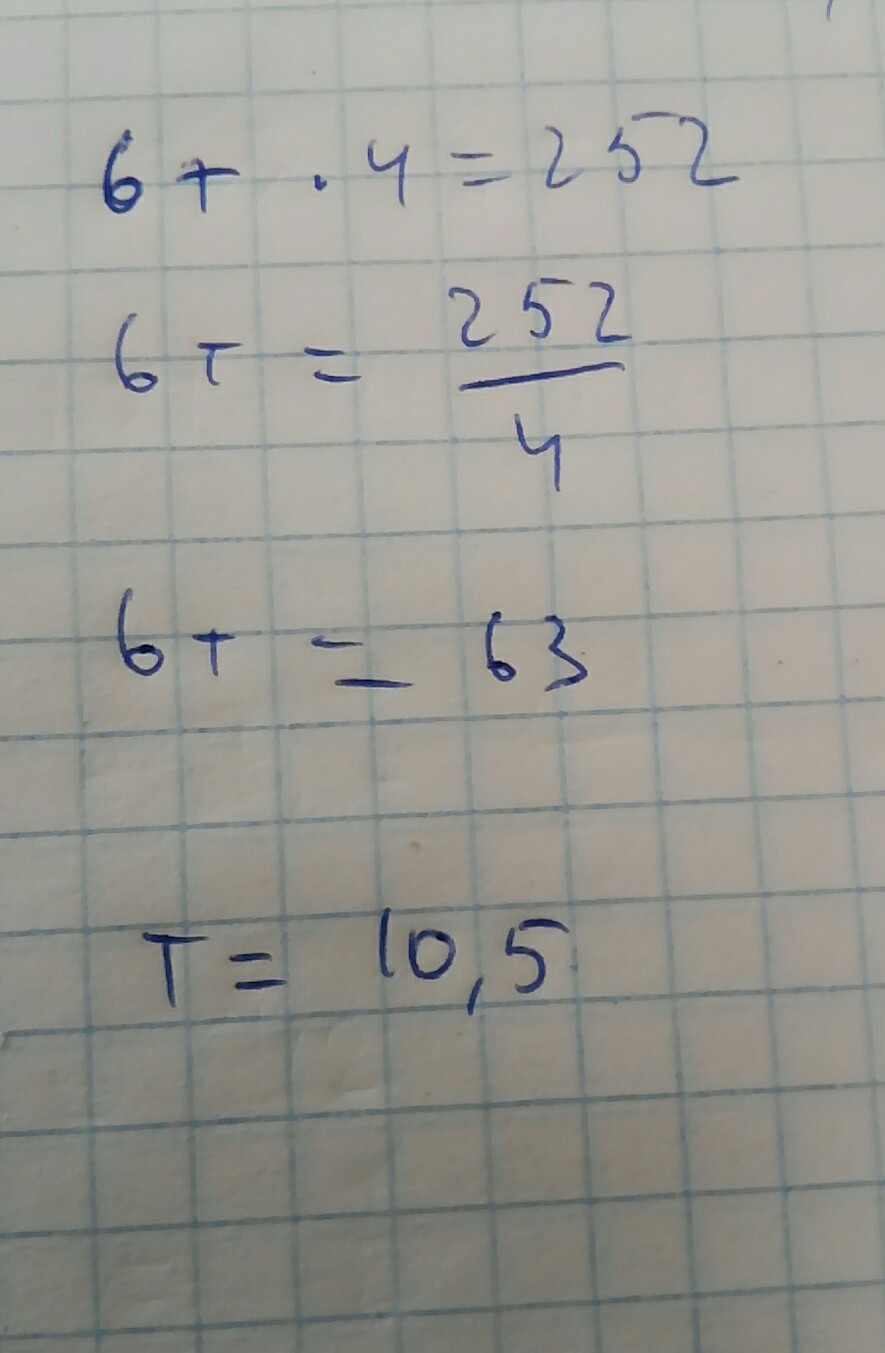 6т · 4 = 252
6т = 252/4
6т = 63
т = 10,5